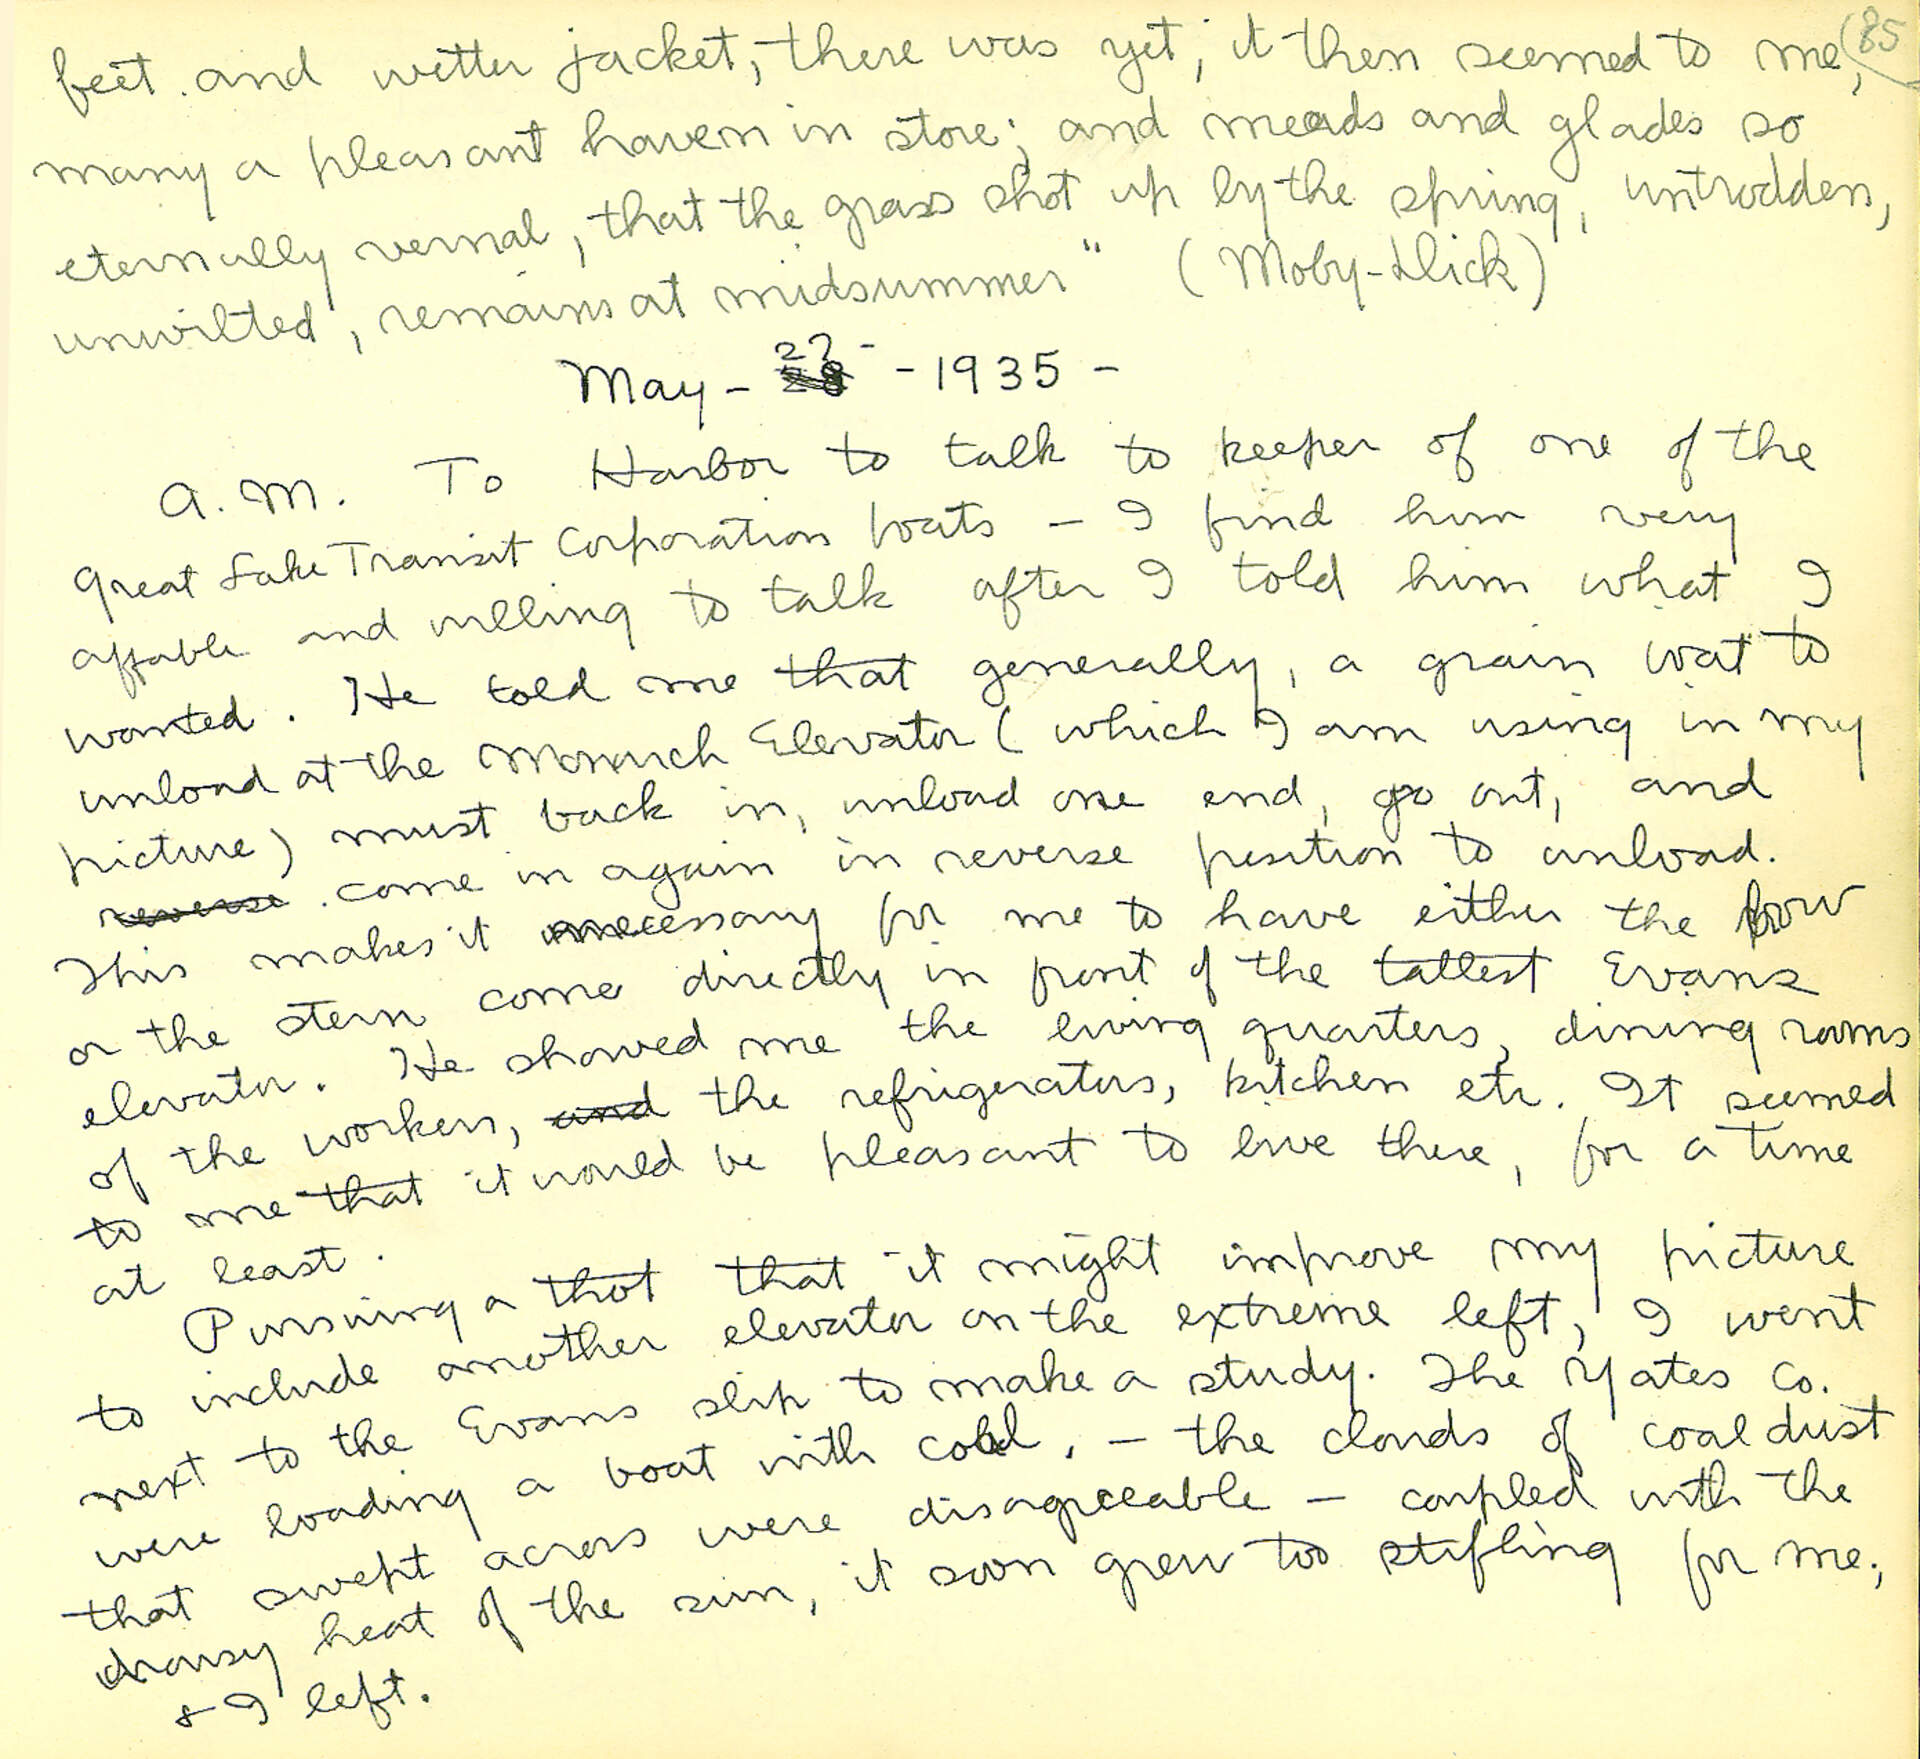 85
feet and wetter jacket, there was yet, it then seemed to me,
many a pleasant haven in store; and meads and glades so
eternally vernal, that the grass shot up by the spring, untrodden,
unwilted, remains at midsummer" (Moby-Dick)
May - 27 - - 1935 -
A.M. To Harbor to talk to keeper of one of the
Great Lake Transit Corporation boats - I find him very
affable and willing to talk after I told him what I
wanted. He told me that generally, a grain boat to
unload at the Monarch Elevator (which I am using in my
picture) must back in, unload one end, go out, and
reverse come in again in reverse position to unload.
This makes it necessary for me to have either the bow
or the stern come directly in front of the tallest Evans
elevator. He showed me the living quarters, dining rooms
of the workers, and the refrigerators, kitchen etc. It seemed
to me that it would be pleasant to live there, for a time
at least.
Pursuing a thot that it might improve my picture
to include another elevator on the extreme left, I went
next to the Evans slip to make a study. The Yates Co.
were loading a boat with coal, - the clouds of coal dust
that swept across were disagreeable - coupled with the
drowsy heat of the sun, it soon grew too stifling for me,
& I left.